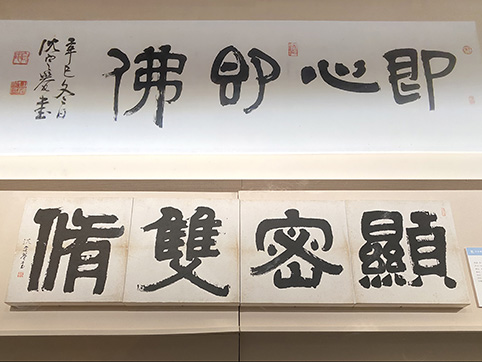 即心即佛
辛巳冬日
沈定庵書
顯密雙脩